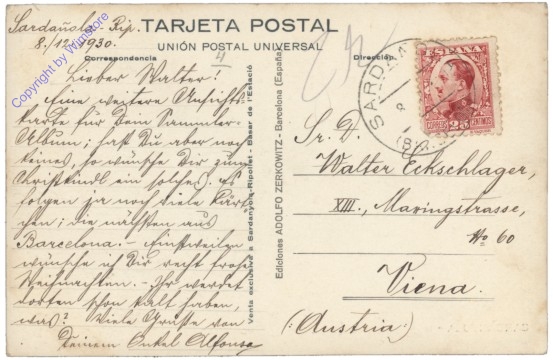 Sardañola-Rip.
8./12. 1930.
Copyright by Wumstore
TARJETA POSTAL
UNIÓN POSTAL UNIVERSAL
Correspondencia
Dirección.
4
Lieber Walter!
Eine weitere Ansichts-
karte für Dein Sammler-
Album; hast Du aber noch
keines, so wünsche Dir zum
Christkindl ein solches. Es
folgen ja noch viele Kärt-
chen; die nächsten aus
Barcelona.- Einstweilen
wünsche ich Dir recht frohe
Weihnachten.- Ihr werdet
dorten schon kalt haben,
was? Viele Grüsse von
Deinem Onkel Alfonso
Venta exclusiva a Sardanyola-Ripollet - Bazar de l'Estació
Ediciones ADOLFO ZERKOWITZ - Barcelona (España)
SARDA
8
ESPAÑA
CORREOS 25 CENTIMOS
Sr. D.
Walter Eckschlager,
XIII., Maxingstrasse,
No 60
Viena.
(Austria)